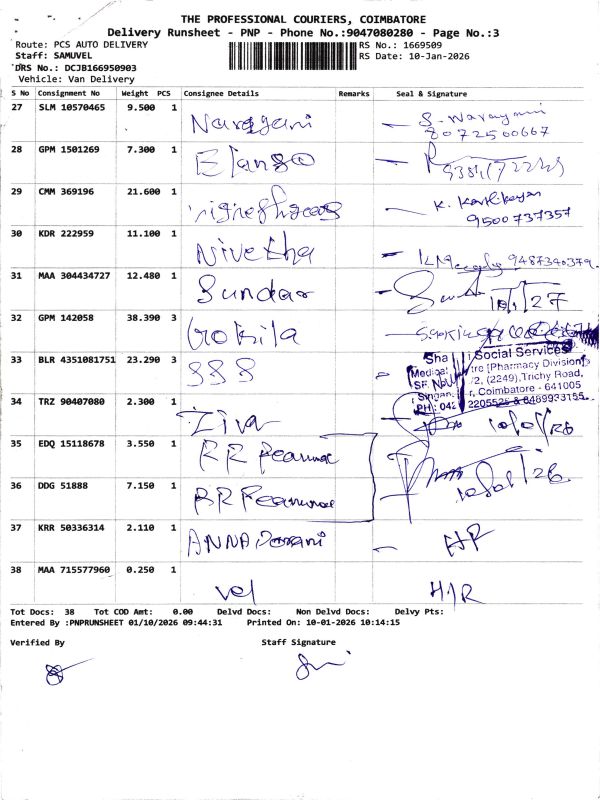 THE PROFESSIONAL COURIERS, COIMBATORE
Delivery Runsheet - PNP - Phone No.:9047080280 - Page No.:3
Route: PCS AUTO DELIVERY
Staff: SAMUVEL
DRS No.: DCJB166950903
Vehicle: Van Delivery
RS No.: 1669509
RS Date: 10-Jan-2026
S No Consignment No Weight PCS Consignee Details Remarks Seal & Signature
27 SLM 10570465 9.500 1 Narayani S. Narayani
8072500667
28 GPM 1501269 7.300 1 Elango
29 CMM 369196 21.600 1 K. Karthikeyan
9500737357
30 KDR 222959 11.100 1 Nivetha 9487340379
31 MAA 304434727 12.480 1 Sundar 10/1/27
32 GPM 142058 38.390 3 Gokila
33 BLR 4351081751 23.290 3 888
Social Services
[Pharmacy Division]
2, (2249), Trichy Road,
Coimbatore - 641005
34 TRZ 90407080 2.300 1 Ziva
35 EDQ 15118678 3.550 1 RR
36 DDG 51888 7.150 1 RR
37 KRR 50336314 2.110 1 ANNA HR
38 MAA 715577960 0.250 1 Vel H/R
Tot Docs: 38 Tot COD Amt: 0.00 Delvd Docs: Non Delvd Docs: Delvy Pts:
Entered By :PNPRUNSHEET 01/10/2026 09:44:31 Printed On: 10-01-2026 10:14:15
Verified By Staff Signature